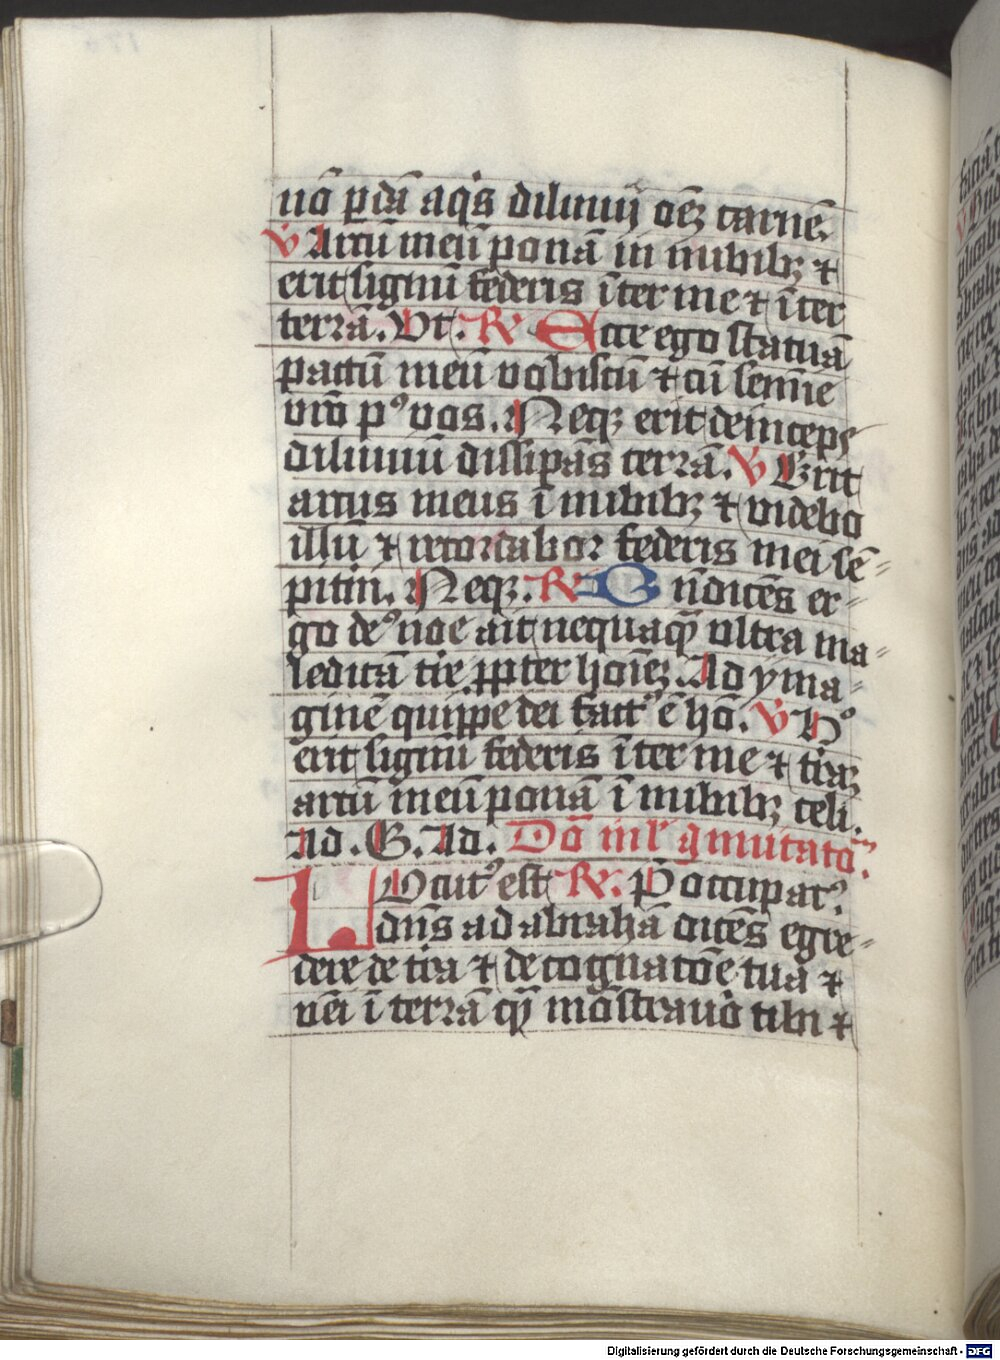 nō ꝑdā aqͥs diluuij oēꝫ carnēꝫ
℣ Arcū meū ponā in nubibꝫ ⁊
erit signū federis īter me ⁊ īter
terrā. Vt. ℟ Ecce ego statuā
pactū meū vobiscū ⁊ cū semīe
vr̄o pꝰ vos. Neqꝫ erit deinceps
diluuiū dissipās terrā. ℣ Erit
arcus meus ī nubibꝫ ⁊ videbo
illū ⁊ recordabor federis mei sē-
pitni. Neqꝫ. ℟ B n̄dicēs er-
go deꝰ noe ait nequaqͣꝫ vltra ma-
ledicā tr̄e ꝓpter hoīeꝫ. Ad yma-
ginē quippe dei factꝰ ē hō. ℣ Hͦ
erit signū federis īter me ⁊ tr̄aꝫ
arcū meū ponā ī nubibꝫ celi.
Ad. G. Ad.
L Ocutꝰ est ℟. P occupatꝰ.
dn̄s ad abrahā dicēs egre-
dere de tr̄a ⁊ de cognatōe tua ⁊
vēi ī terrā qͣꝫ mōstrauo tibi ⁊
Digitalisierung gefördert durch die Deutsche Forschungsgemeinschaft - DFG